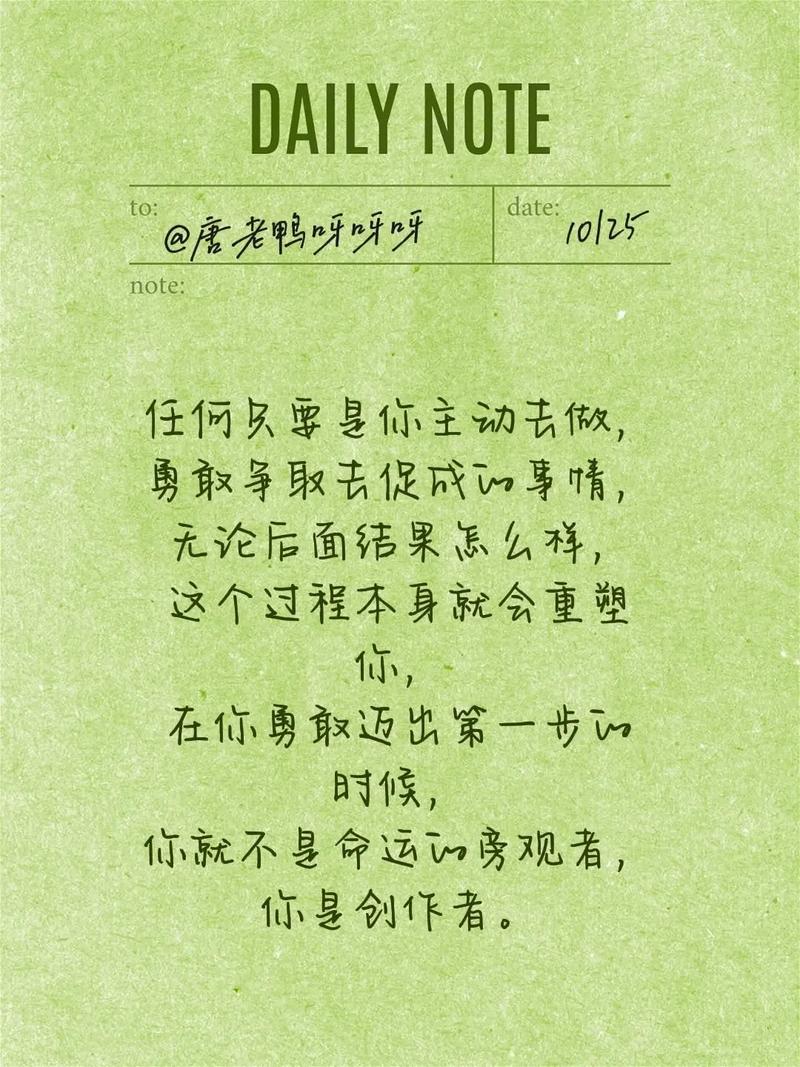 DAILY NOTE
to:
@唐老鸭呀呀呀
date:
10/25
note:
任何只要是你主动去做,
勇敢争取去促成的事情,
无论后面结果怎么样,
这个过程本身就会重塑
你,
在你勇敢迈出第一步的
时候,
你就不是命运的旁观者,
你是创作者。